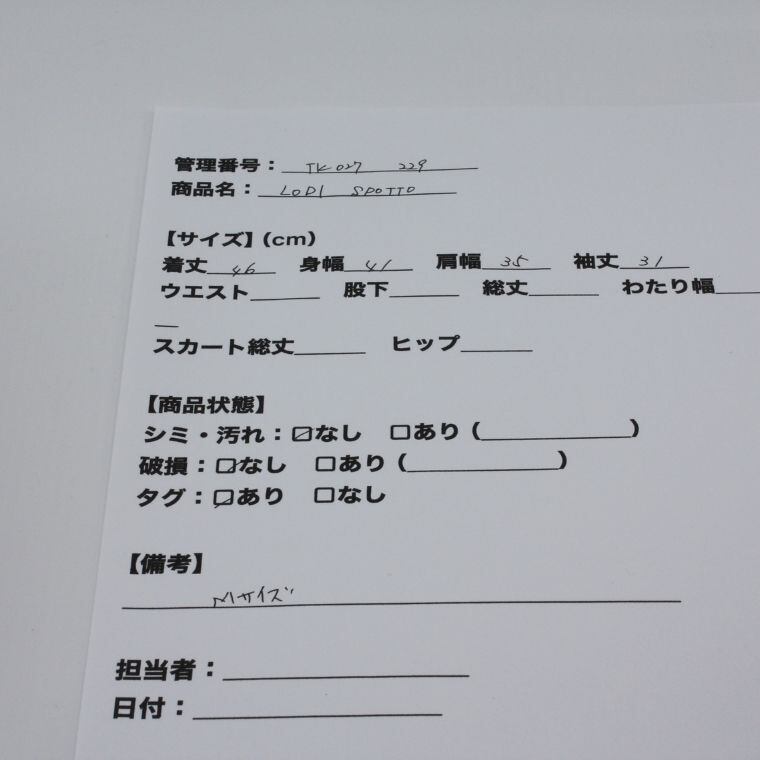 管理番号：TK027 229
商品名：LODI SPOTTO
【サイズ】（cm）
着丈 46 身幅 41 肩幅 35 袖丈 31
ウエスト______ 股下______ 総丈______ わたり幅____
__
スカート総丈______ ヒップ______
【商品状態】
シミ・汚れ：☑なし □あり（____________）
破損：☑なし □あり（____________）
タグ：☑あり □なし
【備考】
Mサイズ
担当者：____________________
日付：____________________